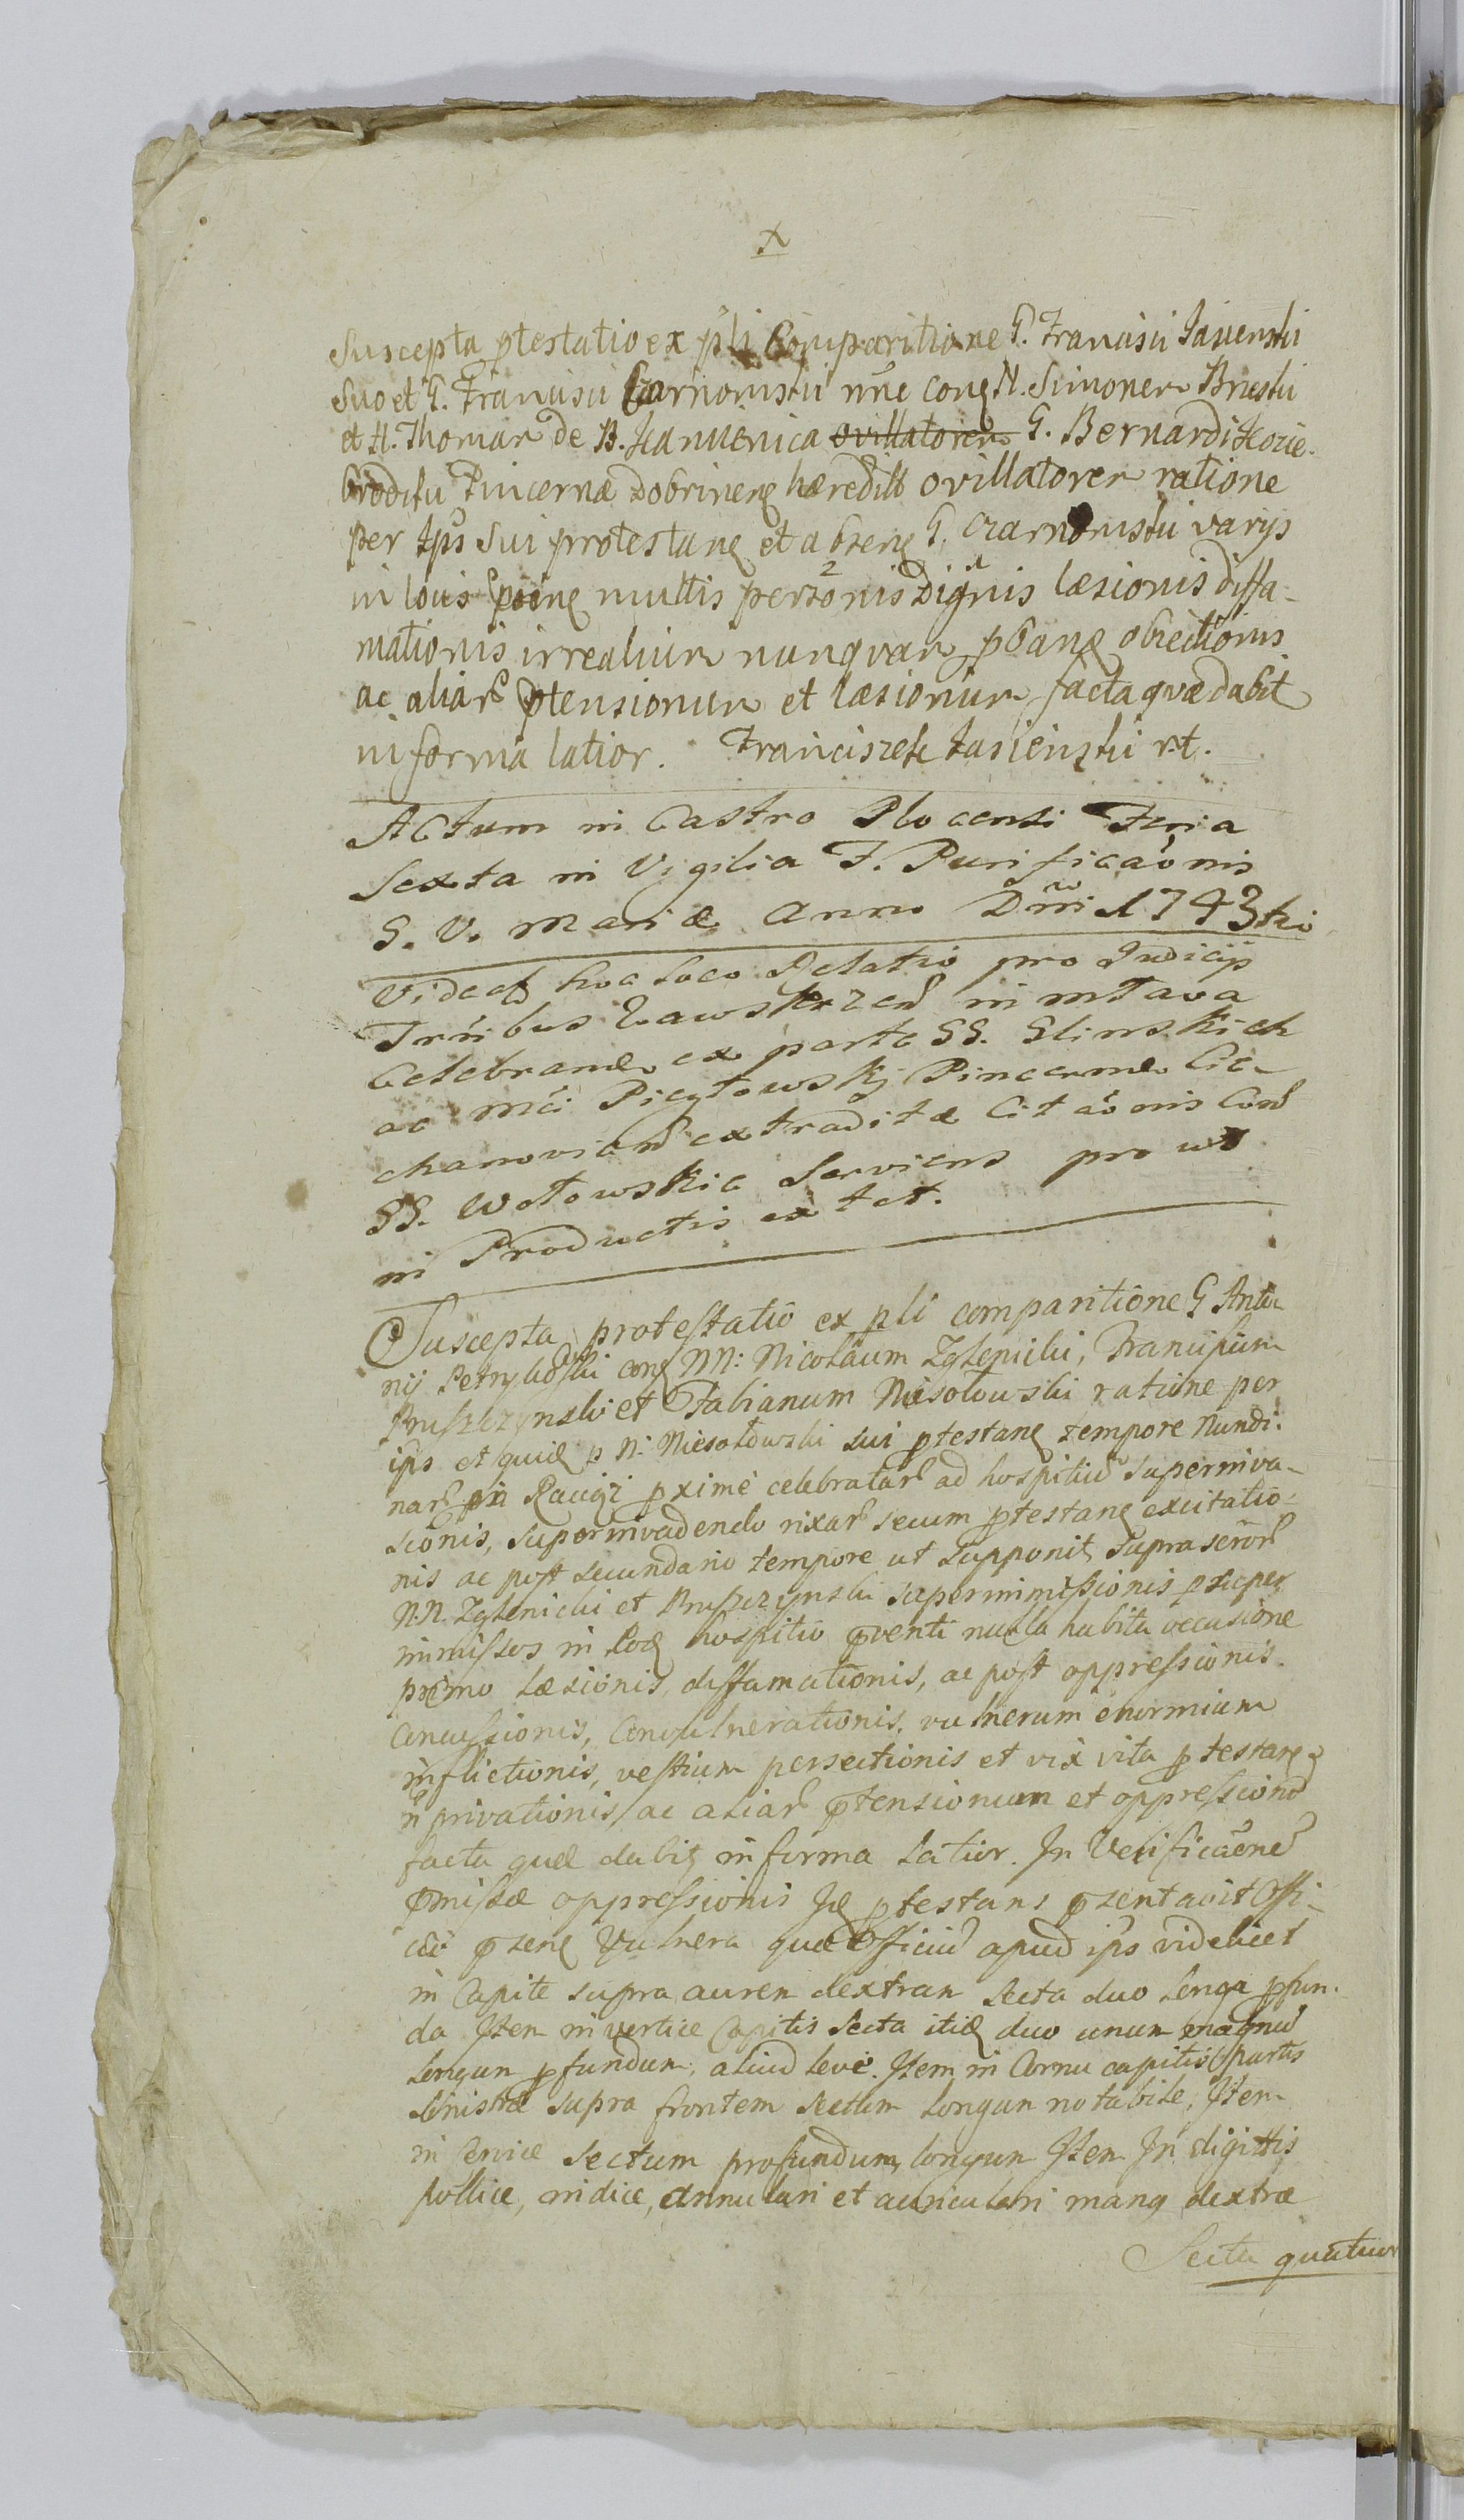 X
Suscepta ptestatio ex pli Comparitione G. Francisci Jasienski
suo et G. Francisci Czarnomski nne conq N. Simonem Brieski
et H. Thomam de B. Kanvenica ovillatorem G. Bernardi Kocie-
brodski Pincernæ Dobrinenq hæredis ovillatorem ratione
per Ips sui protestanq et absenq G. Czarnomski varijs
in locis psenq multis personis Dignis læsionis diffa-
mationis irrealium nunqvam pbanq obiectionis
ac aliar ptensionum et læsionum facta qvæ dabit
in forma latior. Franciszek Jasienski r.t.
Actum in Castro Plocensi Feria
Sexta in Vigilia F. Purificaonis
S. V. Mariæ Anno Dni 1743tio
Videatq hoc loco Relatio pro Judicijs
Trnibus Zawskrzen in Mlava
Celebran ex parte GG. Glinskich
ac Mci Picytowskj Pincernæ Cie-
chanovien extraditæ Citaonis Con
GG. Wolowskie Serviens pro ut
in Productis extet.
Suscepta protestatio ex pli comparitione G Anto-
nij Petrykoski conq NN: Nicolaum Zglenicki, Franciscum
Pruszczynski et Fabianum Niesolowski ratione per
ips et quidq p N: Niesolowski sui ptestanq tempore Nundi-
nar in Raciąż pxime celebratar ad hospitiu superinva-
sionis, superinvadendo rixar secum ptestanq excitatio-
nis ac post secundario tempore ut supponit supra scror
N.N. Zglenicki et Pruszczynski superimmissionis p super
immissos in eodq hospitio pventi nulla habita occasione
primo læsionis diffamationis, ac post oppressionis.
Concussionis, Convulnerationis, vulnerum enormium
inflictionis, vestium persectionis et vix vita ptestanq
n privationis ac aliar ptensionum et oppression
facta quæ dabitq in forma latior. In Verificaonem
pmissæ oppressionis Idq ptestans psentavit Offi-
cio psenq Vulnera quæ Officiu apud ips videlicet
in Capite supra aurem dextram secta duo longa pfun-
da Item in vertice Capitis secta itidq duo unum magnu
longum pfundum, aliud leve. Item in Cornu capitis partis
sinistræ supra frontem sectum longum notabile, Item
in Cervice sectum profundum longum Item In digittis
pollice, indice, annulari et auriculari manq dextræ
Secta quatuor